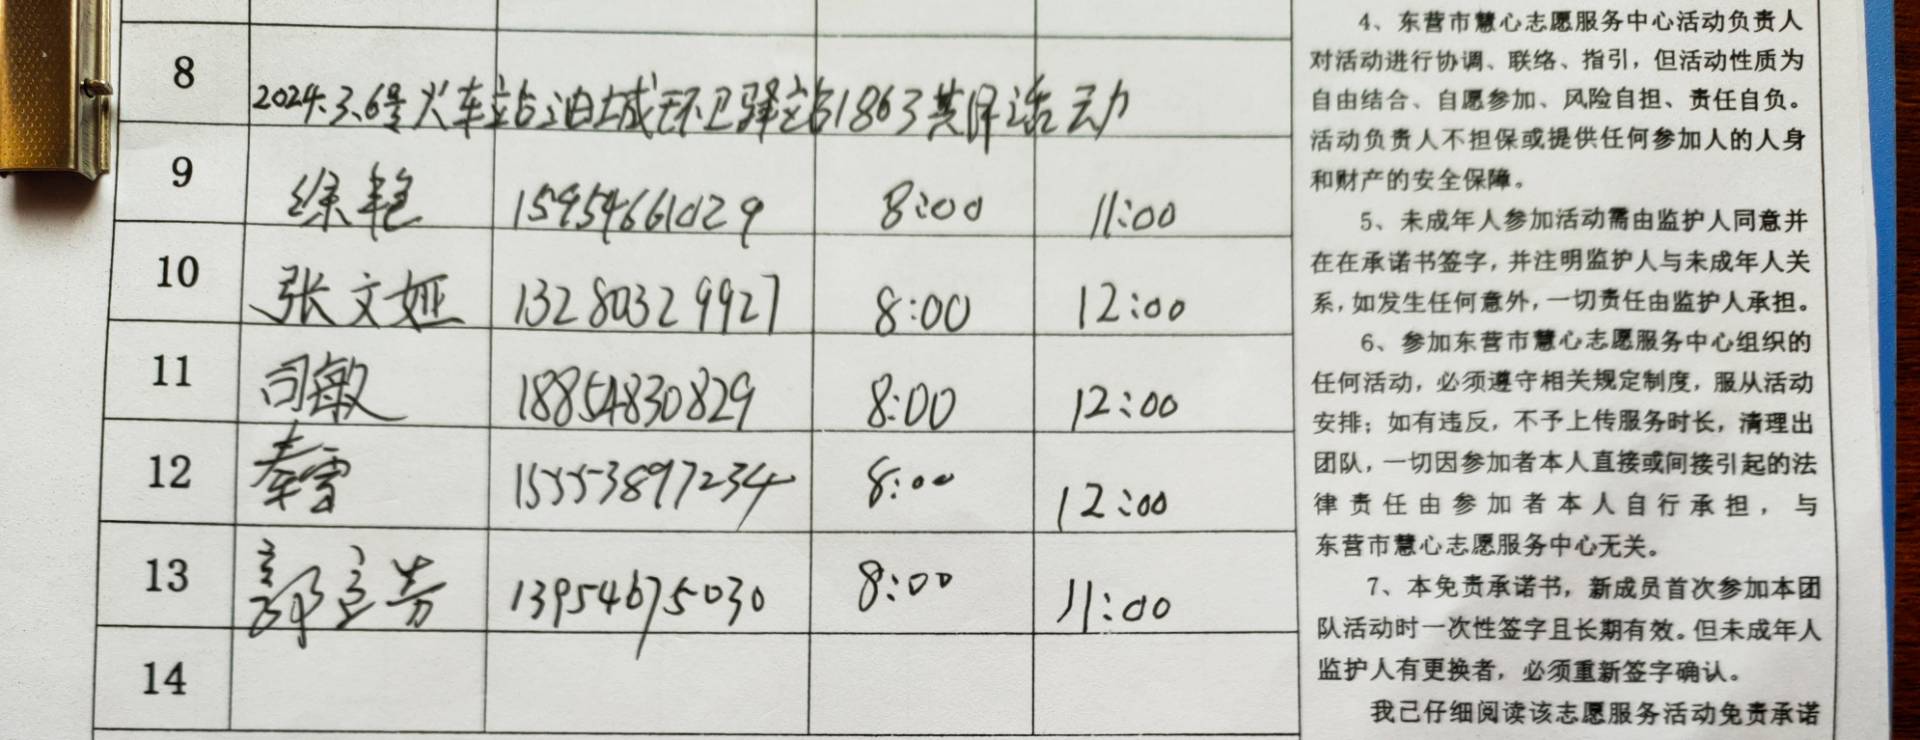 8
2024.3.6号火车站油城环卫驿站1863共保活动
9 徐艳 15954661029 8:00 11:00
10 张文娅 13280329927 8:00 12:00
11 司敏 18854830829 8:00 12:00
12 秦雪 15553897234 8:00 12:00
13 郭立芳 13954675030 8:00 11:00
14
4、东营市慧心志愿服务中心活动负责人
对活动进行协调、联络、指引，但活动性质为
自由结合、自愿参加、风险自担、责任自负。
活动负责人不担保或提供任何参加人的人身
和财产的安全保障。
5、未成年人参加活动需由监护人同意并
在在承诺书签字，并注明监护人与未成年人关
系，如发生任何意外，一切责任由监护人承担。
6、参加东营市慧心志愿服务中心组织的
任何活动，必须遵守相关规定制度，服从活动
安排；如有违反，不予上传服务时长，清理出
团队，一切因参加者本人直接或间接引起的法
律责任由参加者本人自行承担，与
东营市慧心志愿服务中心无关。
7、本免责承诺书，新成员首次参加本团
队活动时一次性签字且长期有效。但未成年人
监护人有更换者，必须重新签字确认。
我已仔细阅读该志愿服务活动免责承诺